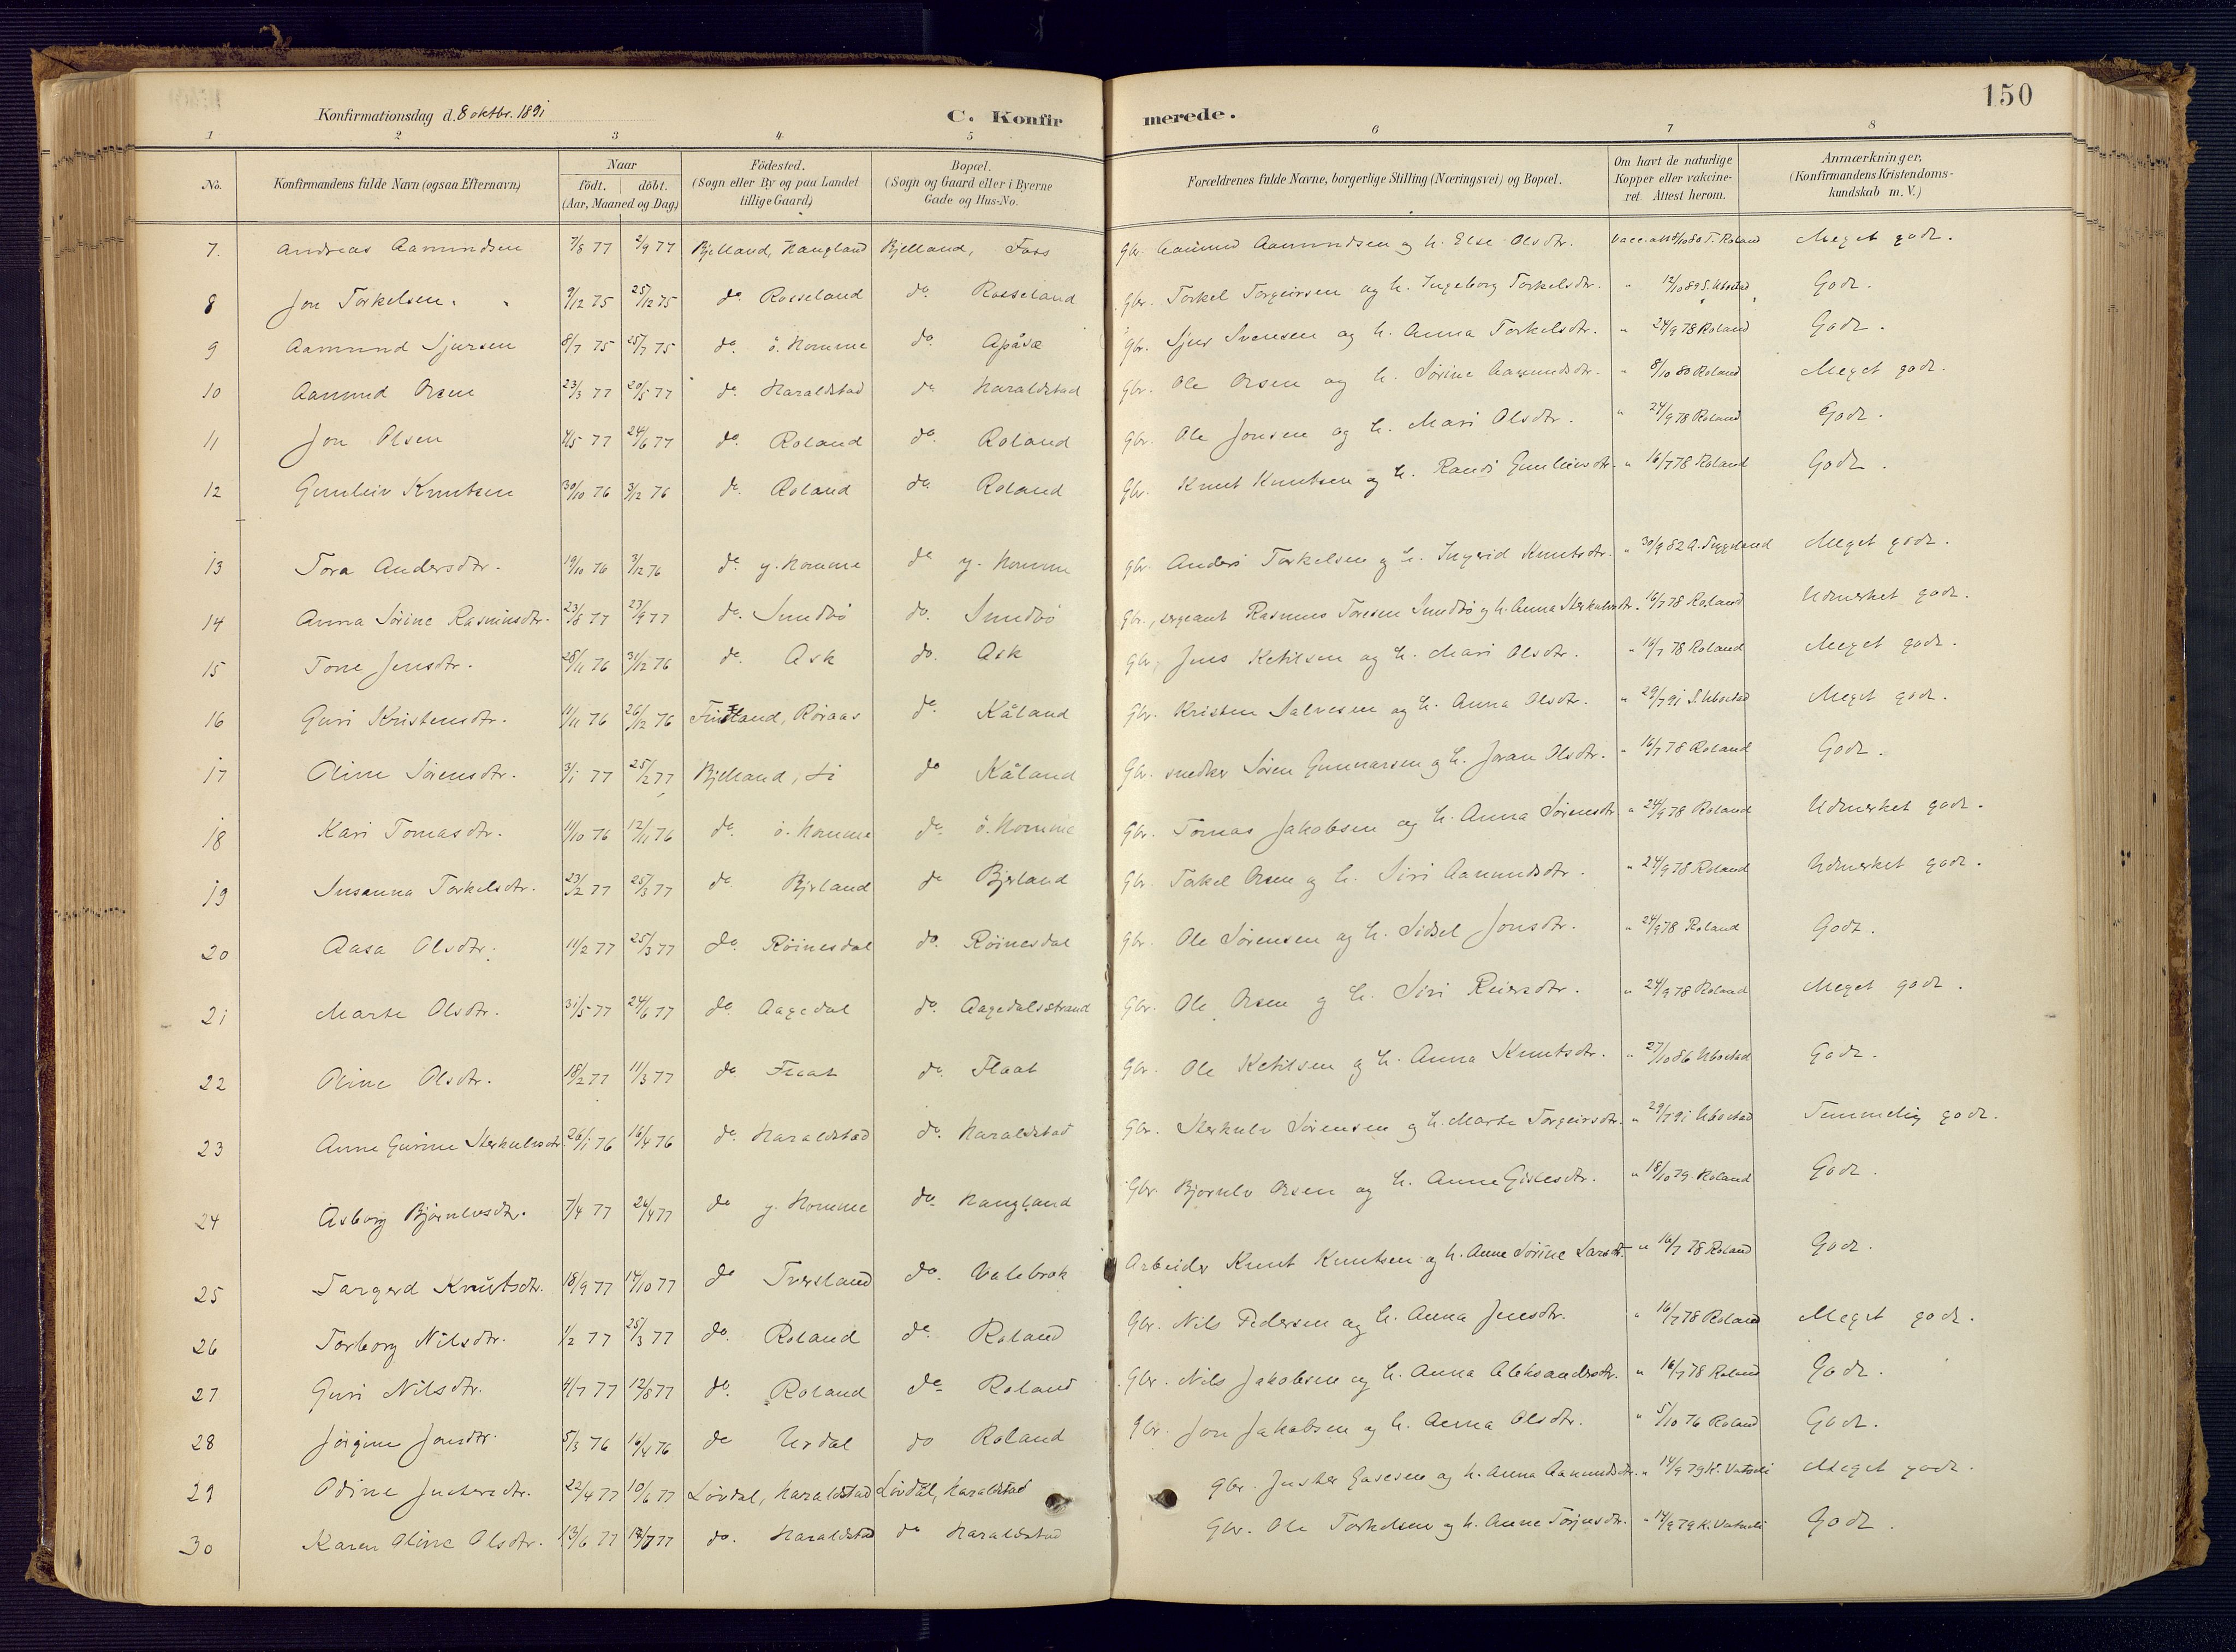 150
Konfirmationsdag d. 8 oktbr. 1891
C. Konfirmerede.
1 2 3 4. 5 6 7 8
No. Konfirmandens fulde Navn (ogsaa Efternavn) Naar födt. döbt. (Aar, Maaned og Dag) Födested. (Sogn eller By og paa Landet tillige Gaard) Bopæl. (Sogn og Gaard eller i Byerne Gade og Hus-No. Forældrenes fulde Navne, borgerlige Stilling (Næringsvei) og Bopæl. Om havt de naturlige Kopper eller vakcineret. Attest herom. Anmærkninger, (Konfirmandens Kristendomskundskab m. V.)
7. Andreas Aamundsen 7/8 77 2/9 77 Bjelland, Haugland Bjelland, Foss Gbr. Aamund Aamundsen og h. Else Olsdtr. Vacc. att 8/10 80 T. Roland Meget godt.
8 Jon Torkelsen. 9/12 75 25/12 75 do. Rosseland do. Rosseland Gbr. Torkel Torgeirsen og h. Ingeborg Torkelsdtr. " 12/10 89 S. Ubostad Godt.
9 Aamund Sjursen 8/7 75 25/7 75 do. ö. Homme do. Apåsæ Gbr. Sjur Svensen og h. Anna Torkelsdtr. " 24/9 78 Roland Godt.
10 Aamund Osen 23/3 77 20/5 77 do. Haraldstad do Haraldstad Gbr. Ole Osen og h. Sörine Aamundsdtr. " 8/10 80 Roland Meget godt.
11 Jon Olsen 4/5 77 24/6 77 do. Roland do. Roland Gbr. Ole Jonsen og h. Mari Olsdtr. " 24/9 78 Roland Godt.
12 Gunleiv Knutsen 30/10 76 3/12 76 do. Roland do. Roland Gbr. Knut Knutsen og h. Randi Gunleivsdtr. " 16/7 78 Roland Godt.
13 Tora Andersdtr. 19/10 76 3/12 76 do. y. Homme do y. Homme Gbr. Anders Torkelsen og h. Ingerid Knutsdtr. " 30/9 82 A. Trygsland Meget godt.
14 Anna Sörine Rasmusdtr. 23/8 77 23/9 77 do. Sundbö do. Sundbö Gbr., sergeant Rasmus Toresen Sundbö og h. Anna Sterkulvsdtr. 16/7 78 Roland Udmerket godt.
15 Tone Jensdtr. 28/11 76 31/12 76 do. Ask do. Ask Gbr, Jens Ketilsen og h. Mari Olsdtr. " 16/7 78 Roland Meget godt.
16 Guri Kristensdtr. 11/11 76 26/12 76 Finsland, Röiraas do. Kåland Gbr. Kristen Salvesen og h. Anna Olsdtr. " 29/7 91 S. Ubostad Meget godt.
17 Oline Sörensdtr. 3/1 77 25/2 77 Bjelland, Li do Kåland Gbr. snedker Sören Gunnarsen og h. Joran Olsdtr. " 16/7 78 Roland Godt.
18 Kari Tomasdtr. 11/10 76 12/11 76 do. ö. Homme do. ö. Homme Gbr. Tomas Jakobsen og h. Anna Sörensdtr " 24/9 78 Roland Udmerket godt.
19 Susanna Torkelsdtr. 23/2 77 25/3 77 do. Bjerland do Bjerland Gbr. Torkel Osen og h. Siri Aamundsdtr. " 24/9 78 Roland Udmerket godt.
20 Aasa Olsdtr. 11/2 77 25/3 77 do. Röinesdal do. Röinesdal Gbr. Ole Sörensen og h. Sidsel Jonsdtr. " 24/9 78 Roland Godt.
21 Marte Olsdtr. 31/5 77 24/6 77 do. Aagedal do. Aagedalsstrand Gbr. Ole Osen og h. Siri Reiersdtr. " 24/9 78 Roland Meget godt.
22 Oline Olsdtr. 18/2 77 11/3 77 do. Flaat do. Flaat Gbr. Ole Ketilsen og h. Anna Knutsdtr. " 27/10 86 Ubostad Godt.
23 Anne Gurine Sterkulvsdtr. 26/1 76 16/4 76 do. Haraldstad do. Haraldstad Gbr. Sterkulv Sörensen og h. Marte Torgeirsdtr. " 29/7 91 Ubostad Temmelig godt.
24 Asborg Björnulvsdtr. 7/4 77 26/4 77 do y. Homme do. Haugland Gbr. Björnulv Osen og h. Anne Gislesdtr. " 18/10 79. Roland Godt.
25 Targerd Knutsdtr. 18/9 77 14/10 77 do Tversland do. Valebrok Arbeider Knut Knutsen og h. Anne Sörine Larsdtr. " 16/7 78 Roland Godt.
26 Torborg Nilsdtr. 1/2 77 25/3 77 do. Roland do. Roland Gbr. Nils Pedersen og h. Anna Jensdtr. " 16/7 78 Roland Meget godt.
27 Guri Nilsdtr. 4/7 77 12/8 77 do. Roland do. Roland Gbr. Nils Jakobsen og h. Anna Aleksandersdtr. " 16/7 78 Roland Godt.
28 Jörgine Jonsdtr. 5/3 76 16/4 76 do Urdal do Roland Gbr. Jon Jakobsen og h. Anna Olsdtr. " 5/10 76 Roland Godt.
29 Odine Justersdtr. 22/4 77 10/6 77 Lövdal, Haraldstad Lövdal, Haraldstad Gbr. Juster Gasesen og h. Anna Aamundsdtr. " 14/9 79 K. Vatneli Meget godt.
30 Karen Oline Olsdtr. 13/6 77 do. Haraldstad do Haraldstad Gbr. Ole Torkelsen og h. Anne Törjusdtr. " 14/9 79 K. Vatneli Godt.